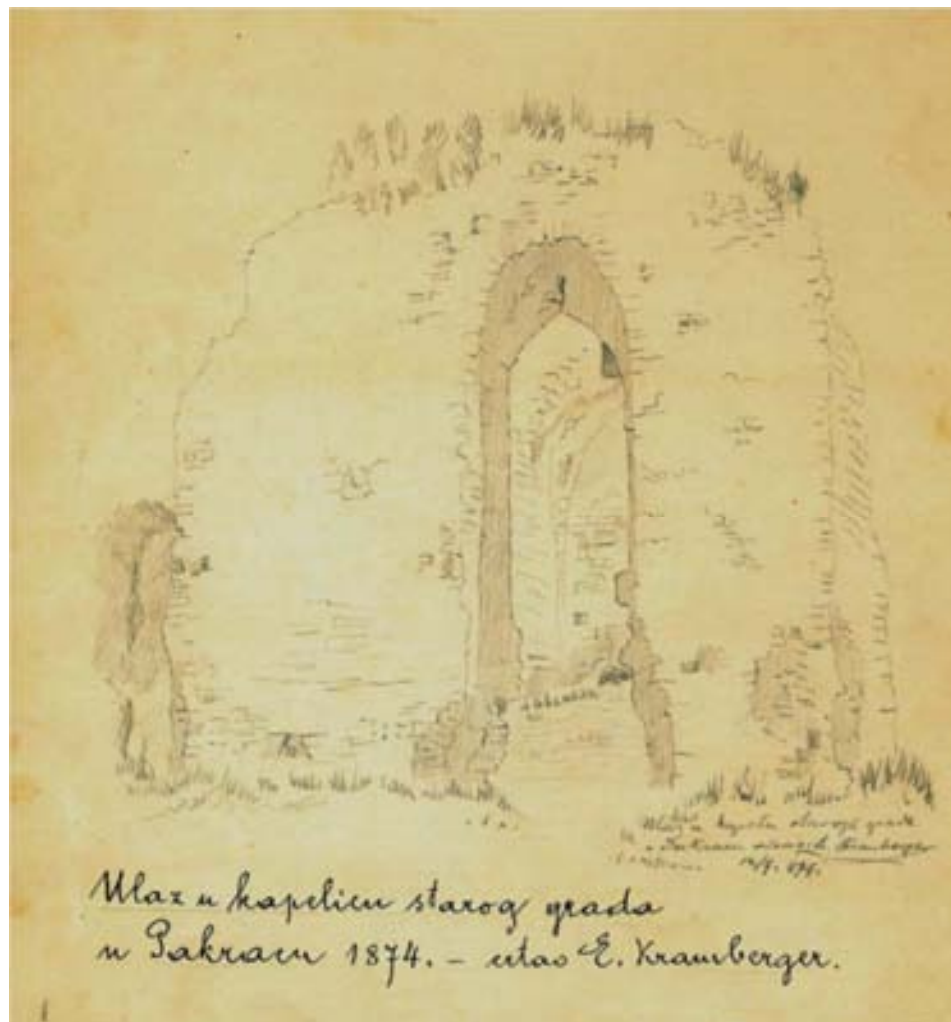 Ulaz u kapelu starog grada
u Pakracu Kramberger
Ulaz u kapelicu starog grada
u Pakracu 1874. – crtao E. Kramberger.